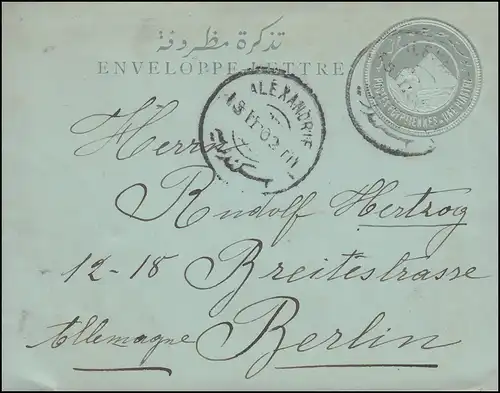 تذكرة مظروفة
ENVELOPPE-LETTRE
POSTES EGYPTIENNES UNE PIASTRE
ALEXANDRIE
Herrn
Rudolf Hertzog
12-18 Breitestrasse
Allemagne Berlin